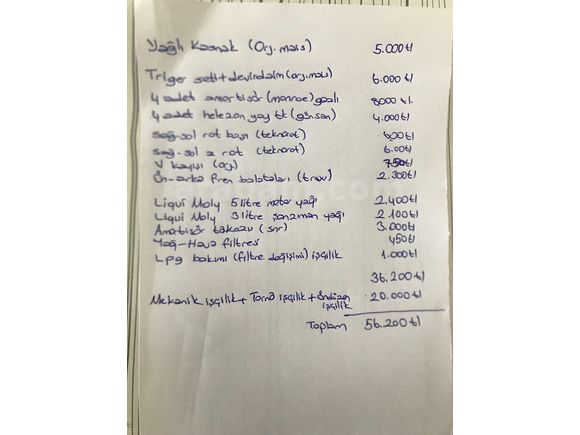 Yağlı Kasnak (Orj. mais) 5.000tl
Triger seti+devirdaim (orj.mais) 6.000tl
4 adet amortisör (monroe) gazlı 8000tl.
4 adet helezon yay tk (günsan) 4.000tl
Sağ-sol rot başı (teknorot) 600tl
Sağ-sol z rot (teknorot) 600tl
V kayışı (orj) 750tl
Ön-arka fren balataları (trw) 2.300tl
Liqui Moly 5 litre motor yağı 2.400tl
Liqui Moly 3 litre şanzıman yağı 2.100tl
Amortisör takozu (snr) 3.000tl
Yağ-Hava filtresi 450tl
Lpg bakımı (filtre değişimi) işçilik 1.000tl
36.200tl
Mekanik işçilik + Torna işçilik + işçilik 20.000tl
Toplam 56.200tl